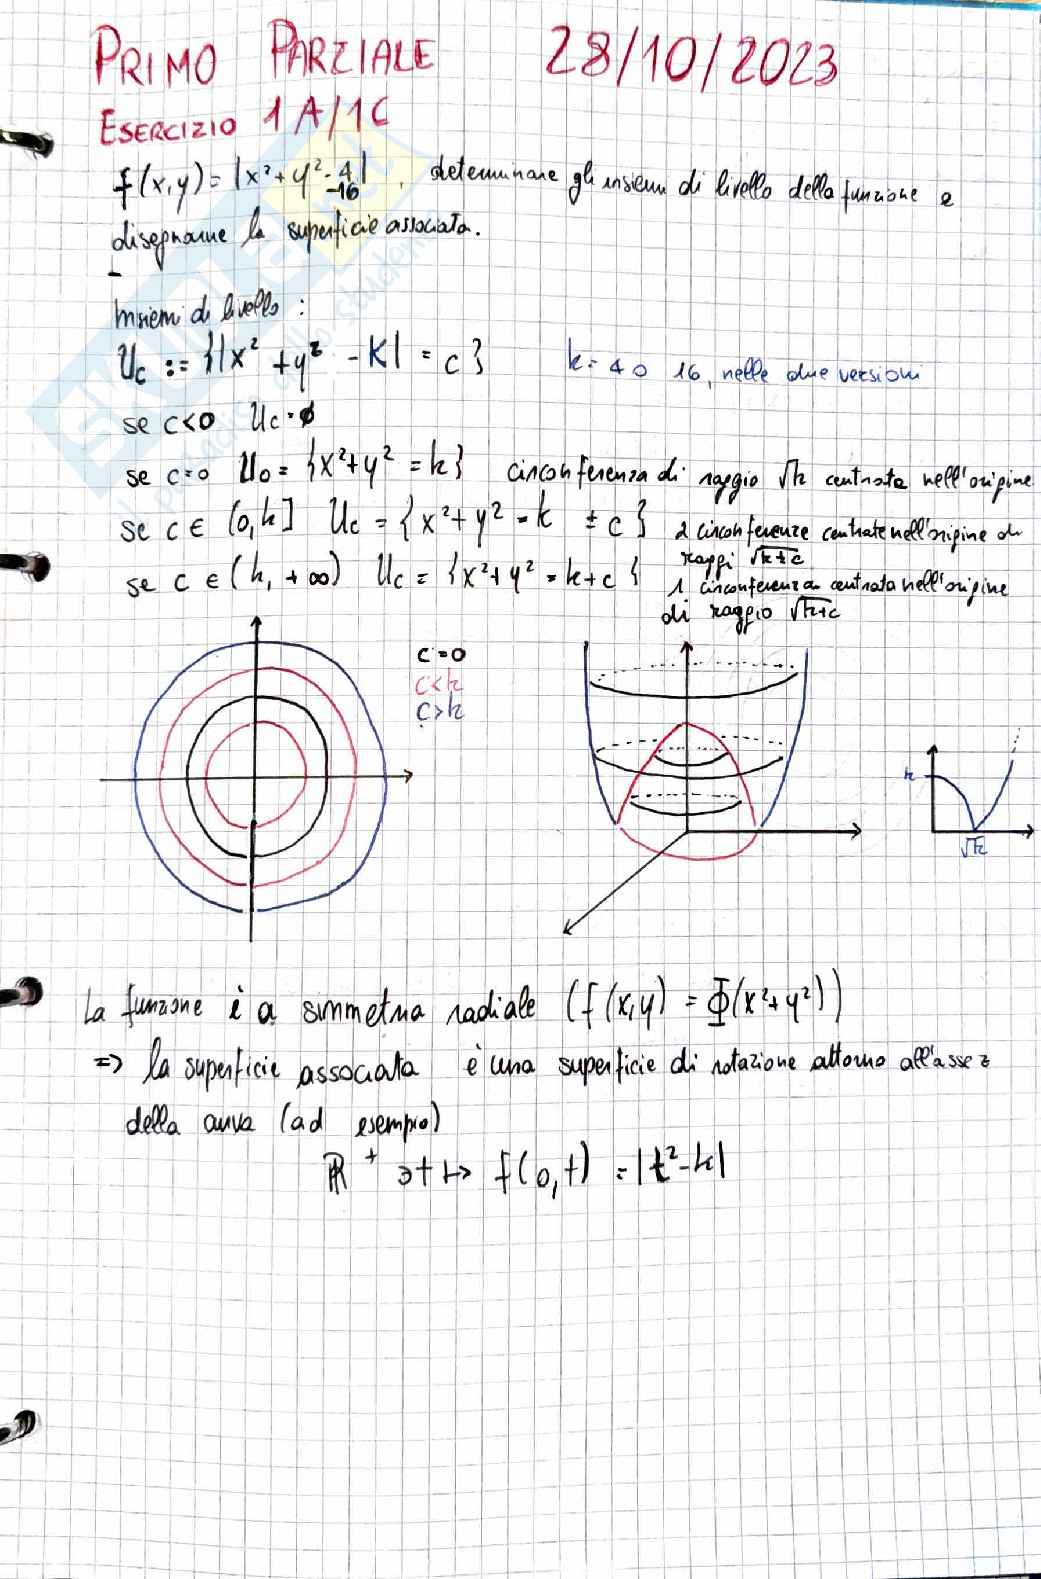 PRIMO PARZIALE 28/10/2023
ESERCIZIO 1A/1C
f(x,y) = |x²+y²-4| , determinare gli insiemi di livello della funzione e
-16
disegnarne la superficie associata.
Insiemi di livello :
Uc := {|x² + y² - K| = c} k = 4 o 16, nelle due versioni
se c<0 Uc = ∅
se c=0 U0 = {x²+y² = k} circonferenza di raggio √k centrata nell'origine
se c ∈ (0,k] Uc = {x²+y² = k ± c} 2 circonferenze centrate nell'origine di
raggi √k±c
se c ∈ (k, +∞) Uc = {x²+y² = k+c} 1 circonferenza centrata nell'origine
di raggio √k+c
c=0
c<k
c>k
k
√k
La funzione è a simmetria radiale (f(x,y) = Φ(x²+y²))
=> la superficie associata è una superficie di rotazione attorno all'asse z
della curva (ad esempio)
ℝ⁺ ∋ t ↦ f(0,t) = |t²-k|